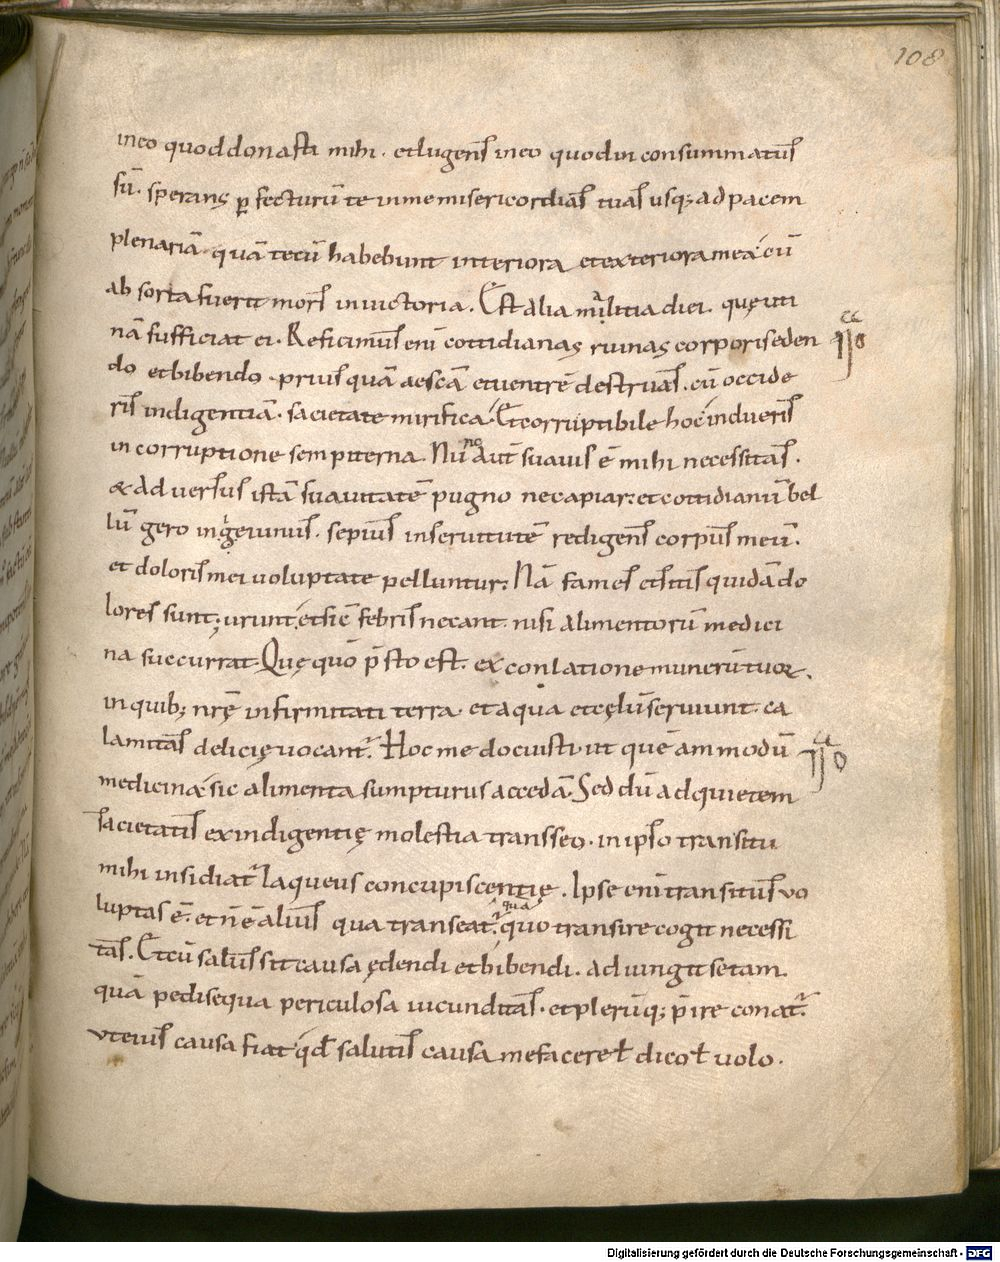 108
ineo quoddonasti mihi. etlugens ineo quodin consummatus
sū. sperans ꝑ fecturū te inme misericordias tuas usq; adpacem
plenariā quā tecū habebunt interiora etexteriora mea cū
ab sorta fuerit mors inuictoria. Est alia militia diei. quę uti
nā sufficiat ei. Reficimus eni cottidianas ruinas corporis eden
do etbibendo. prius quā aescā etuentrē destruas. cū occide
ris indigentiā. sacietate mirifica. Etcorruptibile hoc indueris
incorruptione sempiterna. Nūc aut suauis ē mihi necessitas.
& aduersus istā suauitatē pugno necapiar. etcottidianū bel
lū gero in geiuniis. sepius inseruitutē redigens corpus meū.
et doloris mei uoluptate pelluntur. Nā fames etsitis quidā do
lores sunt. urunt. etsic febris necant. nisi alimentorū medici
na succurrat. Quę quō p̄sto est. ex conlatione munerū tuoꝝ.
inquib; nrę infirmitati terra. etaqua etcęlū seruiunt. ca
lamitas delicię uocant. Hoc me docuisti. ut quē ammodū
medicina sic alimenta sumpturus accedā. Sed dū adquietem
sacietatis exindigentię molestia transseo. inipso transitu
mihi insidiat laqueus concupiscentię. Ipse eni transitus uo
luptas ē. et n ē alius qua transeat. quo transire cogit necessi
qua
tas. Etcū salus sit causa ędendi etbibendi. adiungit setam
quā pedisequa periculosa iucunditas. etplerūq; p̄ire conat.
uteius causa fiat qđ salutis causa mefacere ł dico ł uolo.
Digitalisierung gefördert durch die Deutsche Forschungsgemeinschaft - DFG